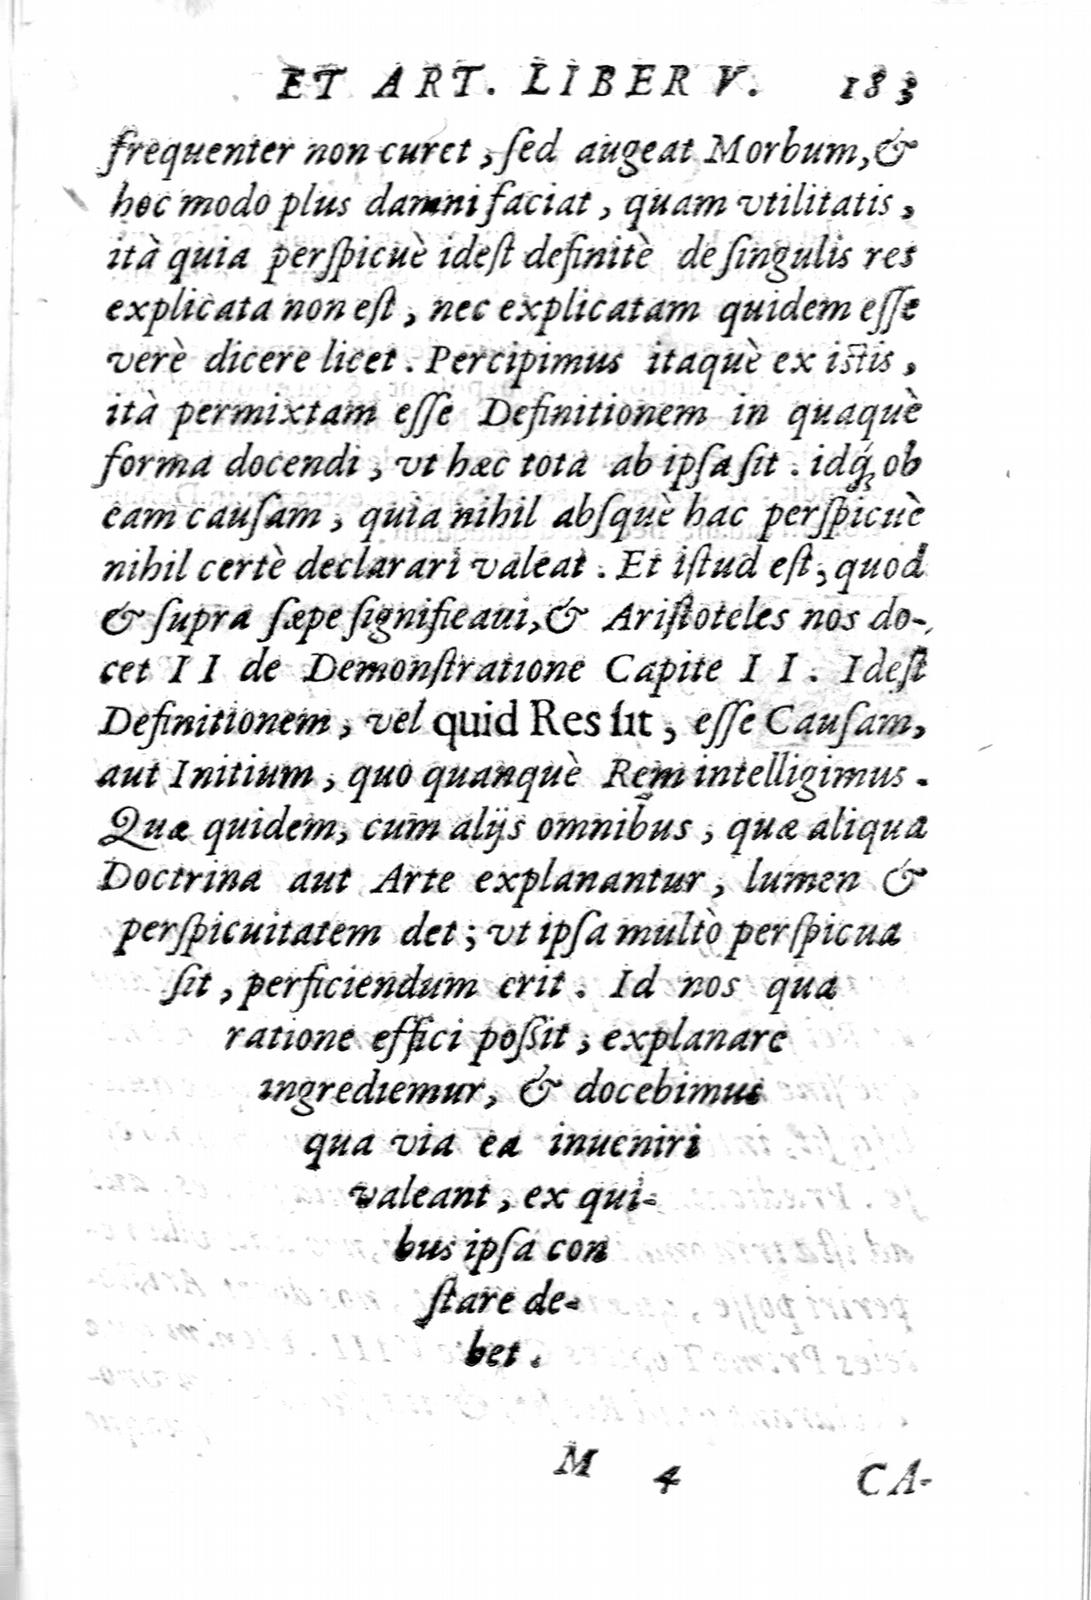 ET ART. LIBER V. 183
frequenter non curet, ſed augeat Morbum, &
hoc modo plus damni faciat, quam vtilitatis,
ità quia perſpicuè ideſt definitè de ſingulis res
explicata non eſt, nec explicatam quidem eſſe
verè dicere licet. Percipimus itaquè ex iſtis,
ità permixtam eſſe Definitionem in quaquè
forma docendi, vt hæc tota ab ipſa ſit. idq́ꝫ ob
eam cauſam, quia nihil abſquè hac perſpicuè
nihil certè declarari valeat. Et iſtud eſt, quod
& ſupra ſæpe ſignifieaui, & Ariſtoteles nos do-
cet II de Demonſtratione Capite II. Ideſt
Definitionem, vel quid Res ſit, eſſe Cauſam,
aut Initium, quo quanquè Rem intelligimus.
Quæ quidem, cum alijs omnibus, quæ aliqua
Doctrina aut Arte explanantur, lumen &
perſpicuitatem det; vt ipſa multò perſpicua
ſit, perficiendum erit. Id nos qua
ratione effici poſſit, explanare
ingrediemur, & docebimus
qua via ea inueniri
valeant, ex qui-
bus ipſa con
ſtare de-
bet.
M 4 CA-